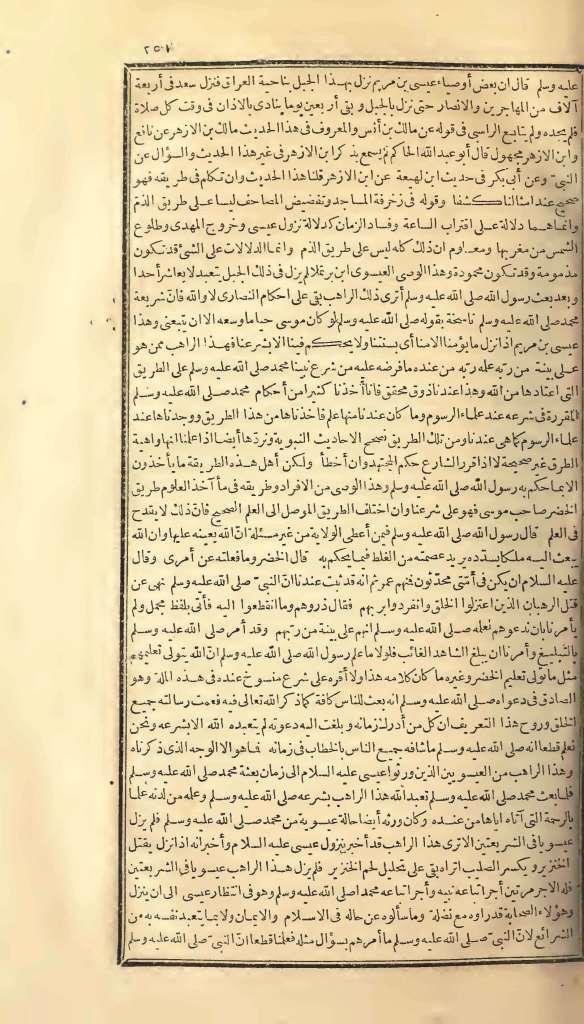 ٢٥١
عليه وسلم قال ان بعض أوصياء عيسى بن مريم نزل بهذا الجبل بناحية العراق فنزل سعد فى أربعة
آلاف من المهاجرين والانصار حتى نزل بالجبل وبقى أربعين يوما ينادى بالاذان فى وقت كل صلاة
فلم يجده ولم يتابع الراسبى فى قوله عن مالك بن أنس والمعروف فى هذا الحديث مالك بن الازهر عن نافع
وابن الازهر مجهول قال أبو عبد الله الحاكم لم يسمع بذكر ابن الازهر فى غير هذا الحديث والسؤال عن
النبىّ وعن أبى بكر فى حديث ابن لهيعة عن ابن الازهر قلنا هذا الحديث وان تكلم فى طريقه فهو
صحيح عند أمثالنا كشفا وقوله فى زخرفة المساجد وتفضيض المصاحف ليسا على طريق الذم
وانما هما دلالة على اقتراب الساعة وفساد الزمان كدلالة نزول عيسى وخروج المهدى وطلوع
الشمس من مغربها ومعلوم ان ذلك كله ليس على طريق الذم وانما الدلالات على الشئ قد تكون
مذمومة وقد تكون محمودة وهذا الوصى العيسوى ابن برثملا لم يزل فى ذلك الجبل يتعبد لا يعاشر أحدا
وبعد بعث رسول الله صلى الله عليه وسلم أترى ذلك الراهب بقى على أحكام النصارى لا والله فانّ شريعة
محمد صلى الله عليه وسلم ناسخة بقوله صلى الله عليه وسلم لو كان موسى حيا ما وسعه الا ان يتبعنى وهذا
عيسى بن مريم اذا نزل ما يؤمنا الا منا أى بسنتنا ولا يحكم فينا الا بشرعنا فهذا الراهب ممن هو
على بينة من ربه علمه ربه من عنده ما فرضه عليه من شرع نبينا محمد صلى الله عليه وسلم على الطريق
التى اعتادها من الله وهذا عندنا ذوق محقق فانا أخذنا كثيرا من أحكام محمد صلى الله عليه وسلم
المقررة فى شرعه عند علماء الرسوم وما كان عندنا منها علم فاخذناها من هذا الطريق ووجدناها عند
علماء الرسوم كما هى عندنا ومن تلك الطريق نصحح الاحاديث النبوية ونردّها أيضا اذا علمنا انها واهية
الطرق غير صحيحة لا اذا قرر الشارع حكم المجتهد وان أخطأ ولكن أهل هذه الطريقة ما يأخذون
الا بما حكم به رسول الله صلى الله عليه وسلم وهذا الوصى من الافراد وطريقه فى مآخذ العلوم طريق
الخضر صاحب موسى فهو على شرعنا وان اختلف الطريق الموصل الى العلم الصحيح فانّ ذلك لا يقدح
فى العلم قال رسول الله صلى الله عليه وسلم فيمن أعطى الولاية من غير مسئلة انّ الله يعينه عليها وان الله
يبعث اليه ملكا يسدده يريد عصمته من الغلط فيما يحكم به قال الخضر وما فعلته عن أمرى وقال
عليه السلام ان يكن فى أمّتى محدّثون فمنهم عمر ثم انه قد ثبت عندنا انّ النبىّ صلى الله عليه وسلم نهى عن
قتل الرهبان الذين اعتزلوا الخلق وانفردوا بربهم فقال ذروهم وما انقطعوا اليه فأتى بلفظ مجمل ولم
يأمرنا بان ندعوهم لعلمه صلى الله عليه وسلم انهم على بينة من ربهم وقد أمر صلى الله عليه وسلم
بالتبليغ وأمرنا ان يبلغ الشاهد الغائب فلولا ما علم رسول الله صلى الله عليه وسلم انّ الله يتولى تعليمهم
مثل ما تولى تعليم الخضر وغيره ما كان كلامه هذا ولا أقره على شرع منسوخ عنده فى هذه الملة وهو
الصادق فى دعواه صلى الله عليه وسلم انه بعث للناس كافة كما ذكر الله تعالى فيه فعمت رسالته جميع
الخلق وروح هذا التعريف ان كل من أدرك زمانه وبلغت اليه دعوته لم يتعبده الله الا بشرعه ونحن
نعلم قطعا انه صلى الله عليه وسلم ما شافه جميع الناس بالخطاب فى زمانه فما هو الا الوجه الذى ذكرناه
وهذا الراهب من العيسويين الذين ورثوا عيسى عليه السلام الى زمان بعثة محمد صلى الله عليه وسلم
فلما بعث محمد صلى الله عليه وسلم تعبد الله هذا الراهب بشرعه صلى الله عليه وسلم وعلمه من لدنه علما
بالرحمة التى آتاه اياها من عنده وكان ورثه أيضا حالة عيسوية من محمد صلى الله عليه وسلم فلم يزل
عيسويا فى الشريعتين الا ترى هذا الراهب قد أخبر بنزول عيسى عليه السلام وأخبر انه اذا نزل يقتل
الخنزير ويكسر الصليب اتراه بقى على تحليل لحم الخنزير فلم يزل هذا الراهب عيسويا فى الشريعتين
فله الاجر مرتين أجر اتباعه نبيه وأجر اتباعه محمدا صلى الله عليه وسلم وهو فى انتظار عيسى الى ان ينزل
وهؤلاء الصحابة قد رأوه مع نضلة وما سألوه عن حاله فى الاسلام والايمان ولا بما يتعبد نفسه به من
الشرائع لانّ النبىّ صلى الله عليه وسلم ما أمرهم بسؤال مثله فعلمنا قطعا انّ النبىّ صلى الله عليه وسلم